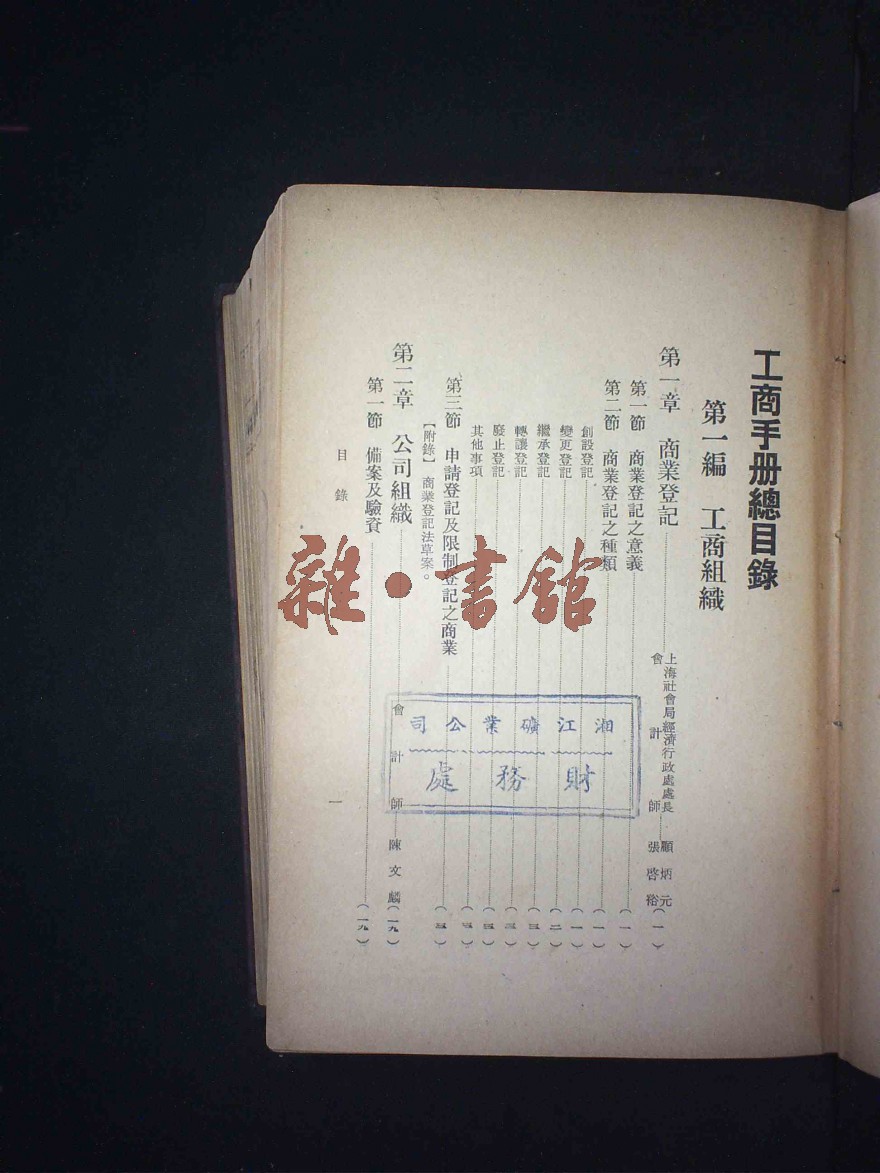 工商手册總目錄
第一編　工商組織
第一章　商業登記　上海社會局經濟行政處處長　顧炳元　會計師　張啓裕（一）
第一節　商業登記之意義（一）
第二節　商業登記之種類（一）
創設登記（一）
變更登記（二）
繼承登記（三）
轉讓登記（三）
廢止登記（三）
其他事項（三）
第三節　申請登記及限制登記之商業（三）
【附錄】商業登記法草案。
第二章　公司組織　會計師　陳文麟（一九）
第一節　備案及驗資（一九）
目錄
一
湘江礦業公司
財務處
雜·書館